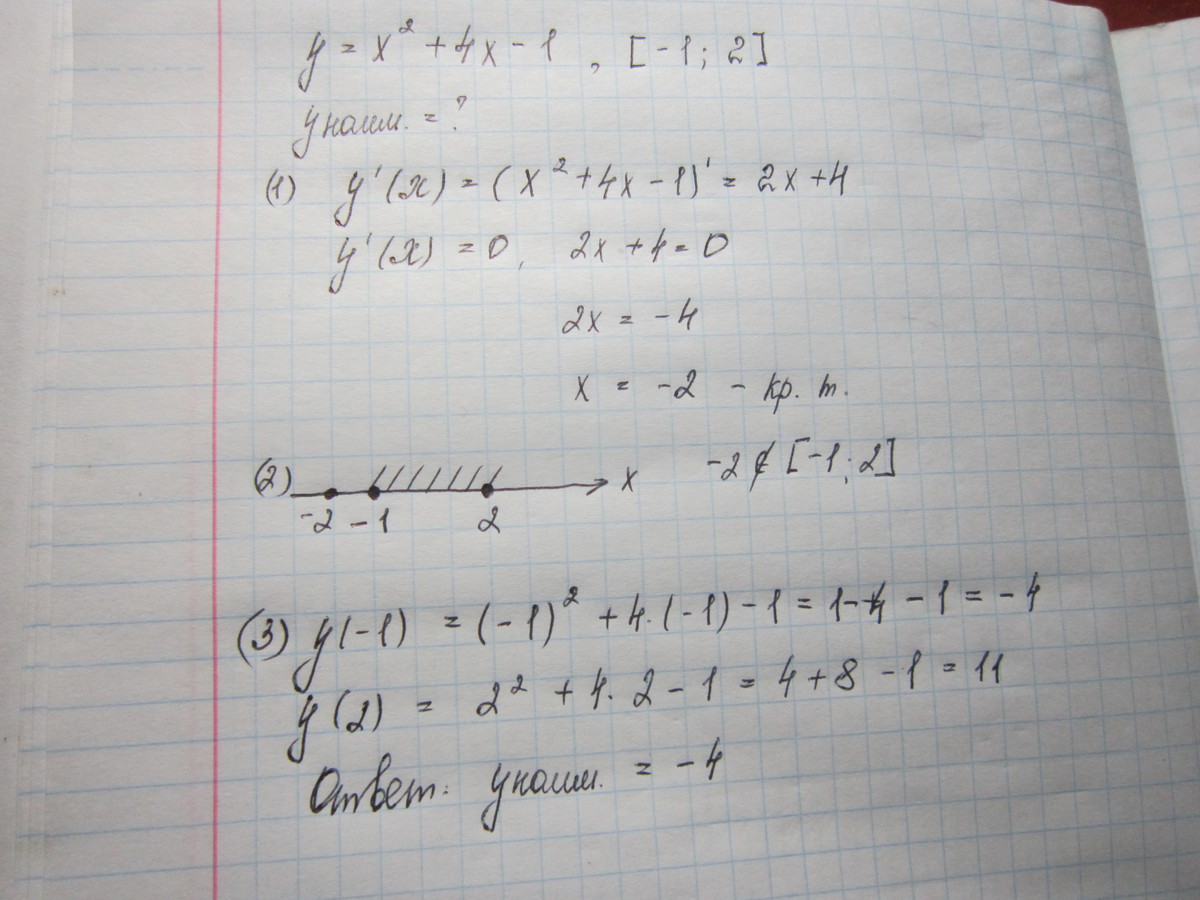 y = x² + 4x - 1 , [-1; 2]
yнаим. = ?
(1) y'(x) = (x² + 4x - 1)' = 2x + 4
y'(x) = 0, 2x + 4 = 0
2x = -4
x = -2 - кр. т.
(2) -2 -1 2 x -2 ∉ [-1; 2]
(3) y(-1) = (-1)² + 4·(-1) - 1 = 1 - 4 - 1 = -4
y(2) = 2² + 4·2 - 1 = 4 + 8 - 1 = 11
Ответ: yнаим. = -4